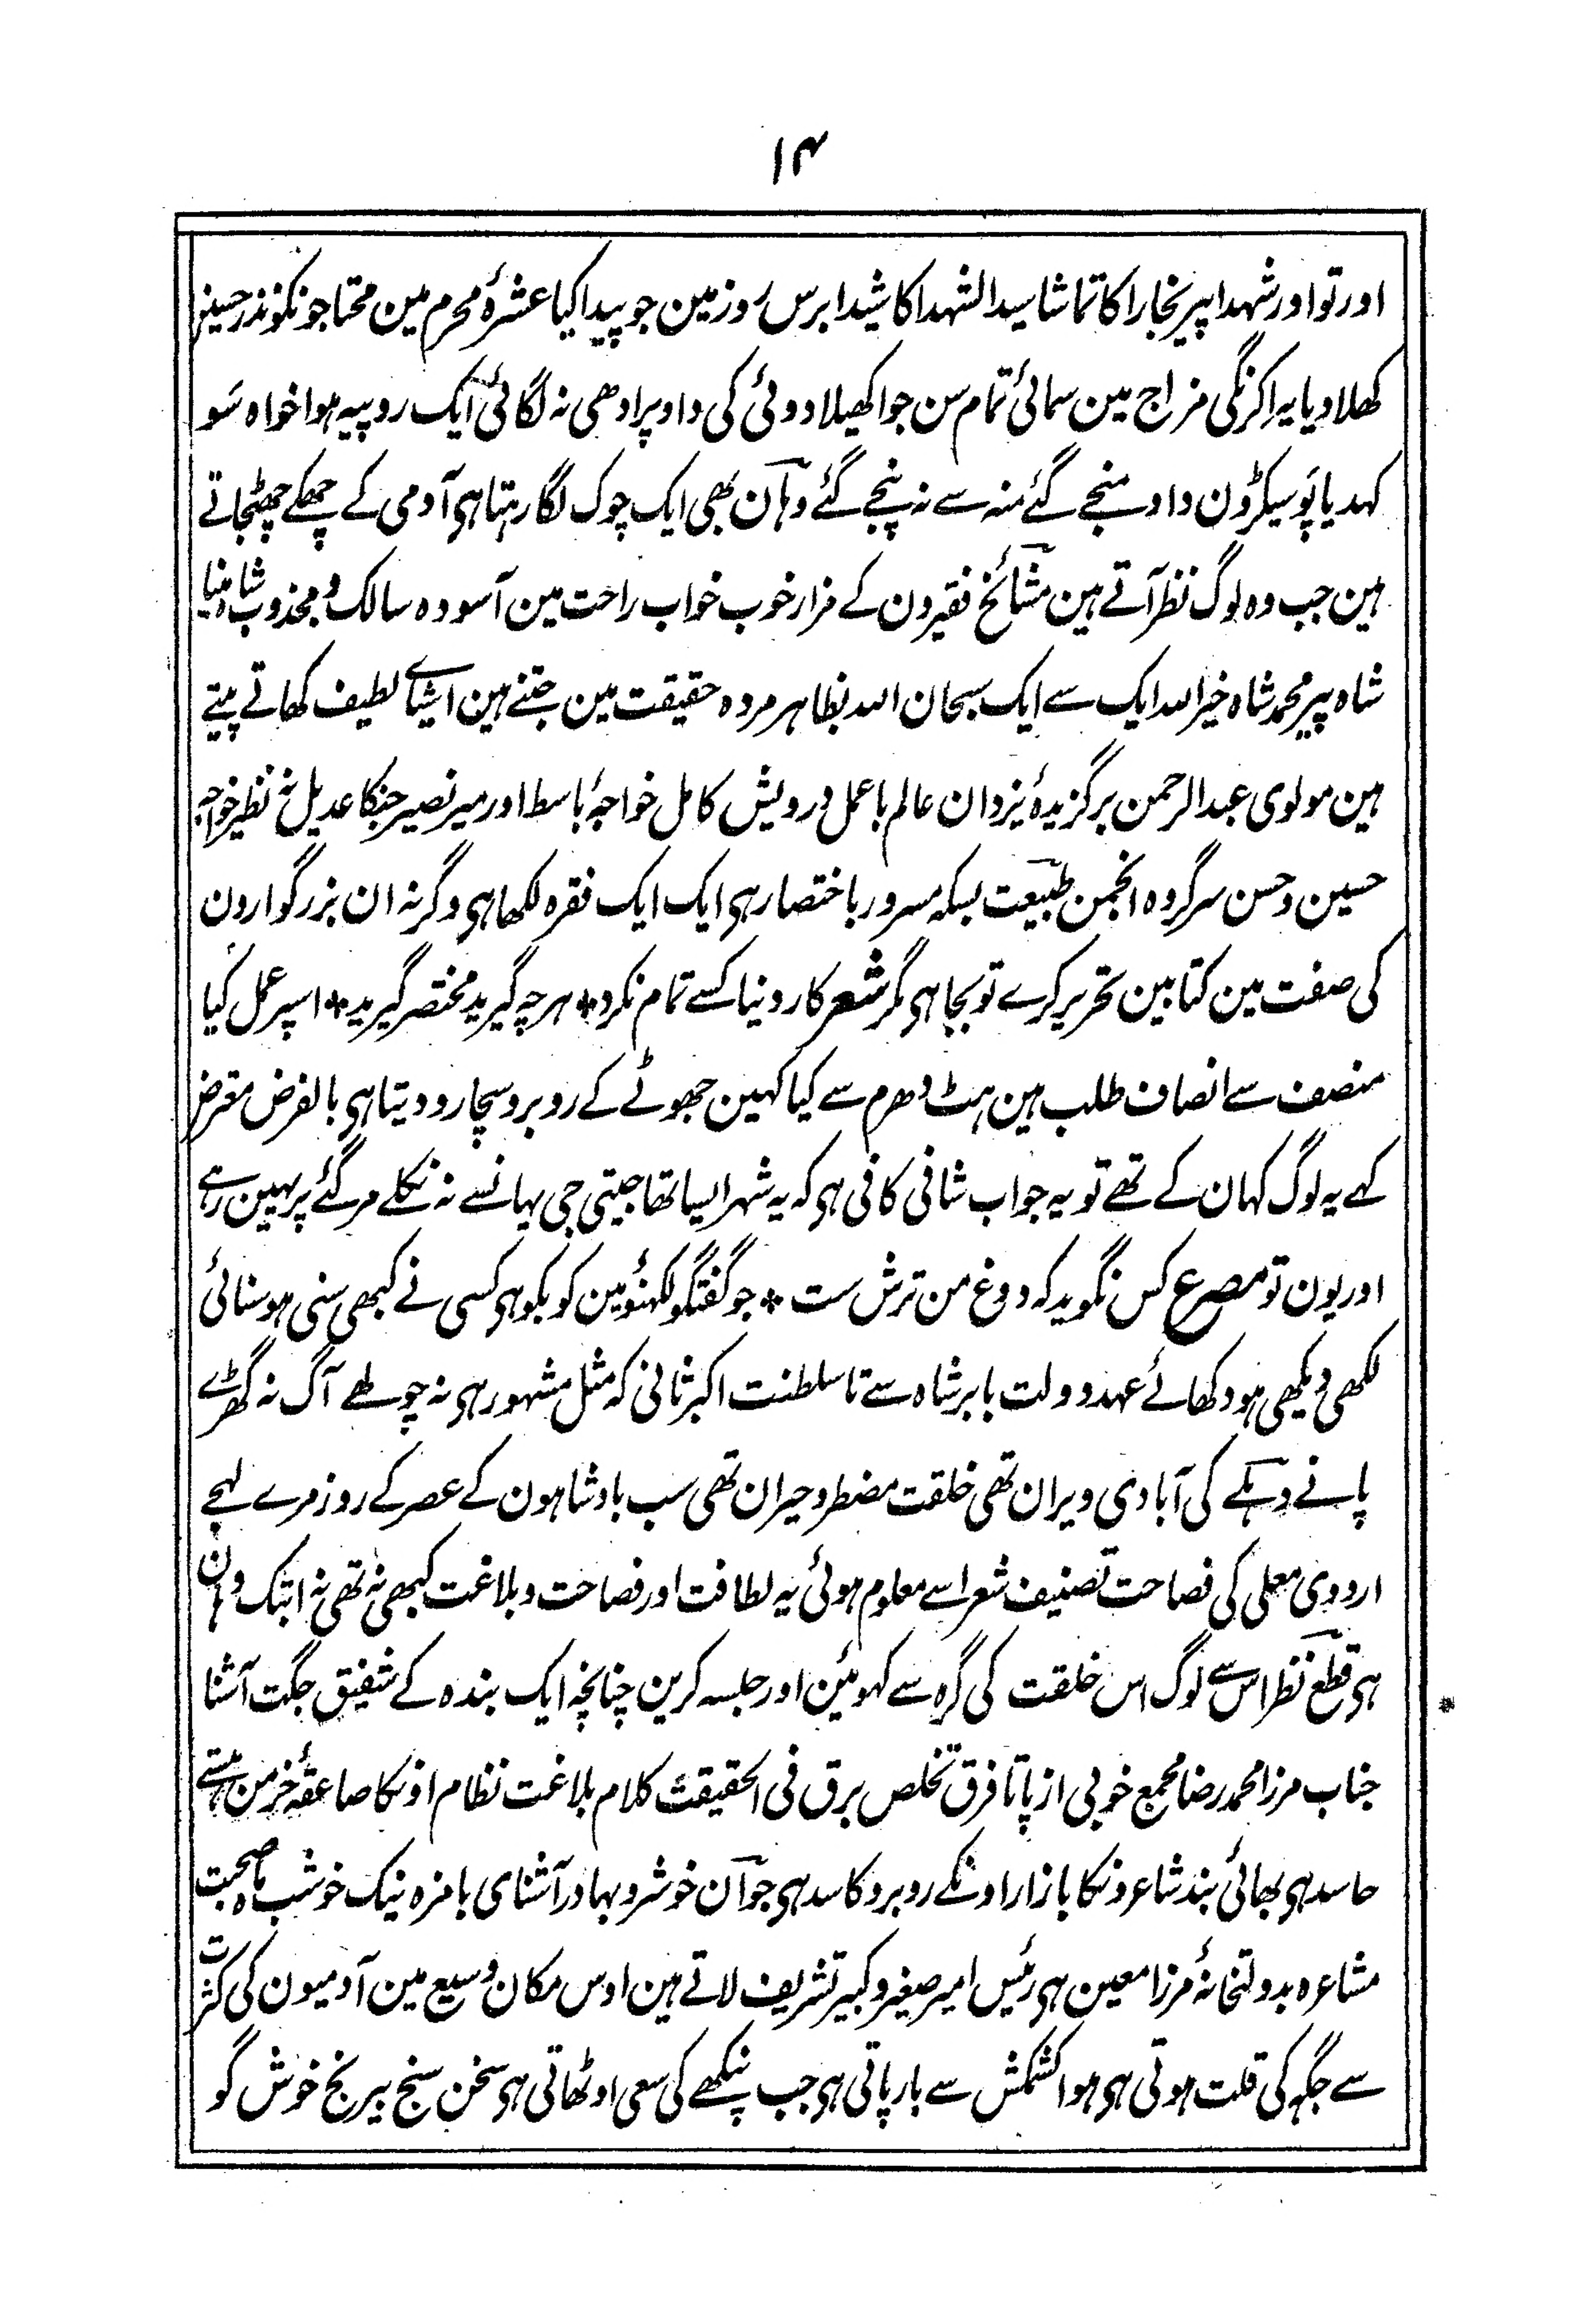 ۱۴
اور تو اور شہدا پیر بخارا کا تماشا سید الشہدا کا شیدا برس روز مین جو پیدا کیا عشرۂ محرم مین محتاجونکو نذر حسین
کھلا دیا یہ اکرنگی مزاج مین سمائی تمام سن جوا کھیلا دوئی کی داو پر ادھی نہ لگائی ایک روپیہ ہوا خواہ سَو
کہدیا پَو سیکڑون داو بنجے گئے منہ سے نہ پنجے گئے وہان بھی ایک چوک لگا رہتا ہی آدمی کے چھکے چھٹجاتے
ہین جب وہ لوگ نظر آتے ہین مشائخ فقیرون کے مزار خوب خواب راحت مین آسودہ سالک و مجذوب شاہ مینا
شاہ پیر محمد شاہ خیر اللہ ایک سے ایک سبحان اللہ بظاہر مردہ حقیقت مین جتنے ہین اشیاے لطیف کھاتے پیتے
ہین مولوی عبد الرحمن برگزیدۂ یزدان عالم باعمل درویش کامل خواجۂ باسط اور میر نصیر جنکا عدیل نہ نظیر خواجہ
حسین و حسن سرگروہ انجمن طبیعت بسکہ مسرور باختصار ہی ایک ایک فقرہ لکھا ہی وگرنہ ان بزرگوارون
کی صفت مین کتابین تحریر کرے تو بجا ہی مگر شعر کار دنیا کسے تمام نکرد * ہر چہ گیرید مختصر گیرید * اسپر عمل کیا
منصف سے انصاف طلب ہین ہٹ دھرم سے کیا کہین جھوٹے کے روبرو سچا رو دیتا ہی بالفرض معترض
کہے یہ لوگ کہان کے تھے تو یہ جواب شافی کافی ہی کہ یہ شہر ایسا تھا جیتی جی یہانسے نہ نکلے مر گئے پر یہین رہے
اور یون تو مصرع کس نگوید کہ دوغ من ترش ست * جو گفتگو لکھنؤ مین کو بکو ہی کسی نے کبھی سنی ہو سنائی
لکھی دیکھی ہو دکھائے عہد دولت بابر شاہ سے تا سلطنت اکبر ثانی کہ مثل مشہور ہی نہ چولھے آگ نہ گھڑے
پانے دہکے کی آبادی ویران تھی خلقت مضطر و حیران تھی سب بادشاہون کے عصر کے روزمرے لہجے
اردوی معلی کی فصاحت تصنیف شعرا سے معلوم ہوئی یہ لطافت اور فصاحت و بلاغت کبھی نہ تھی نہ ابتک وہان
ہی قطع نظر اس سے لوگ اس خلقت کی گرہ سے کہوئین اور جلسہ کرین چنانچہ ایک بندہ کے شفیق جگت آشنا
جناب مرزا محمد رضا مجمع خوبی از پا تا فرق تخلص برق فی الحقیقت کلام بلاغت نظام اونکا صاعقۂ خرمن ہستے
حاسد ہی بھائی بند شاعرونکا بازار اونکے روبرو کاسد ہی جوان خوشرو بہادر آشنای بامزہ نیک خو شب ماہ صحبت
مشاعرہ بدولتخانۂ مرزا معین ہی رئیس امیر صغیر و کبیر تشریف لاتے ہین اوس مکان وسیع مین آدمیون کی کثرت
سے جگہہ کی قلت ہوتی ہی ہوا کشمکش سے بار پاتی ہی جب پنکھے کی سعی اوٹھاتی ہی سخن سنج بیرنج خوش گو